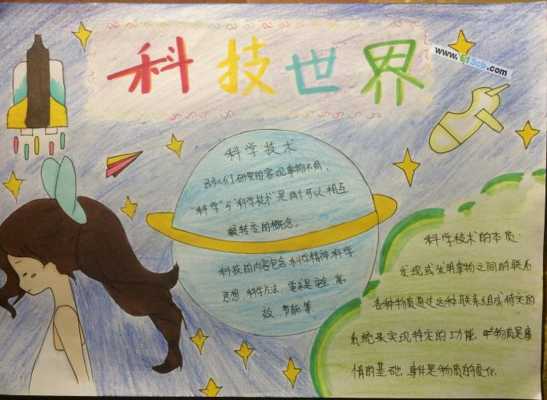 科技世界
www.
.com
科学技术
研究的客观事物不同,
“科学”与“科学技术”是两个可以相互
转变的概念。
科技的内容包含科学精神 科学
思想 科学方法
效、节能等
科学技术的本质:
发现或发明事物之间的联系
各种物质通过这种联系组成特定的
系统来实现特定的功能
情的基础 事件是物质的变化